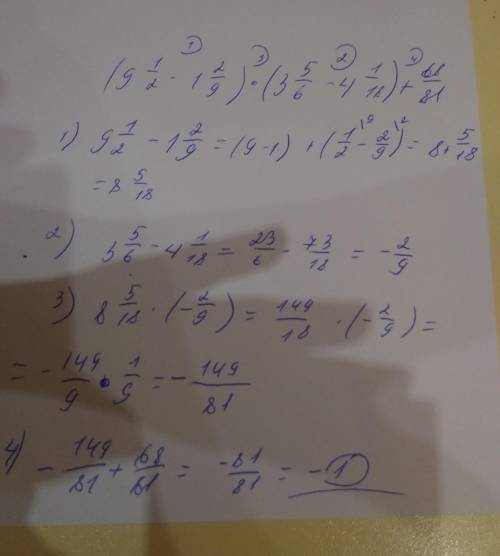 ① ③ ② ④
(9 1/2 - 1 2/9) • (3 5/6 - 4 1/18) + 68/81
1) 9 1/2 - 1 2/9 = (9-1) + (1/2\9 - 2/9\2) = 8 + 5/18
= 8 5/18
2) 3 5/6 - 4 1/18 = 23/6 - 73/18 = - 2/9
3) 8 5/18 · (- 2/9) = 149/18 · (- 2/9) =
= - 149/9 • 1/9 = - 149/81
4) - 149/81 + 68/81 = -81/81 = -1